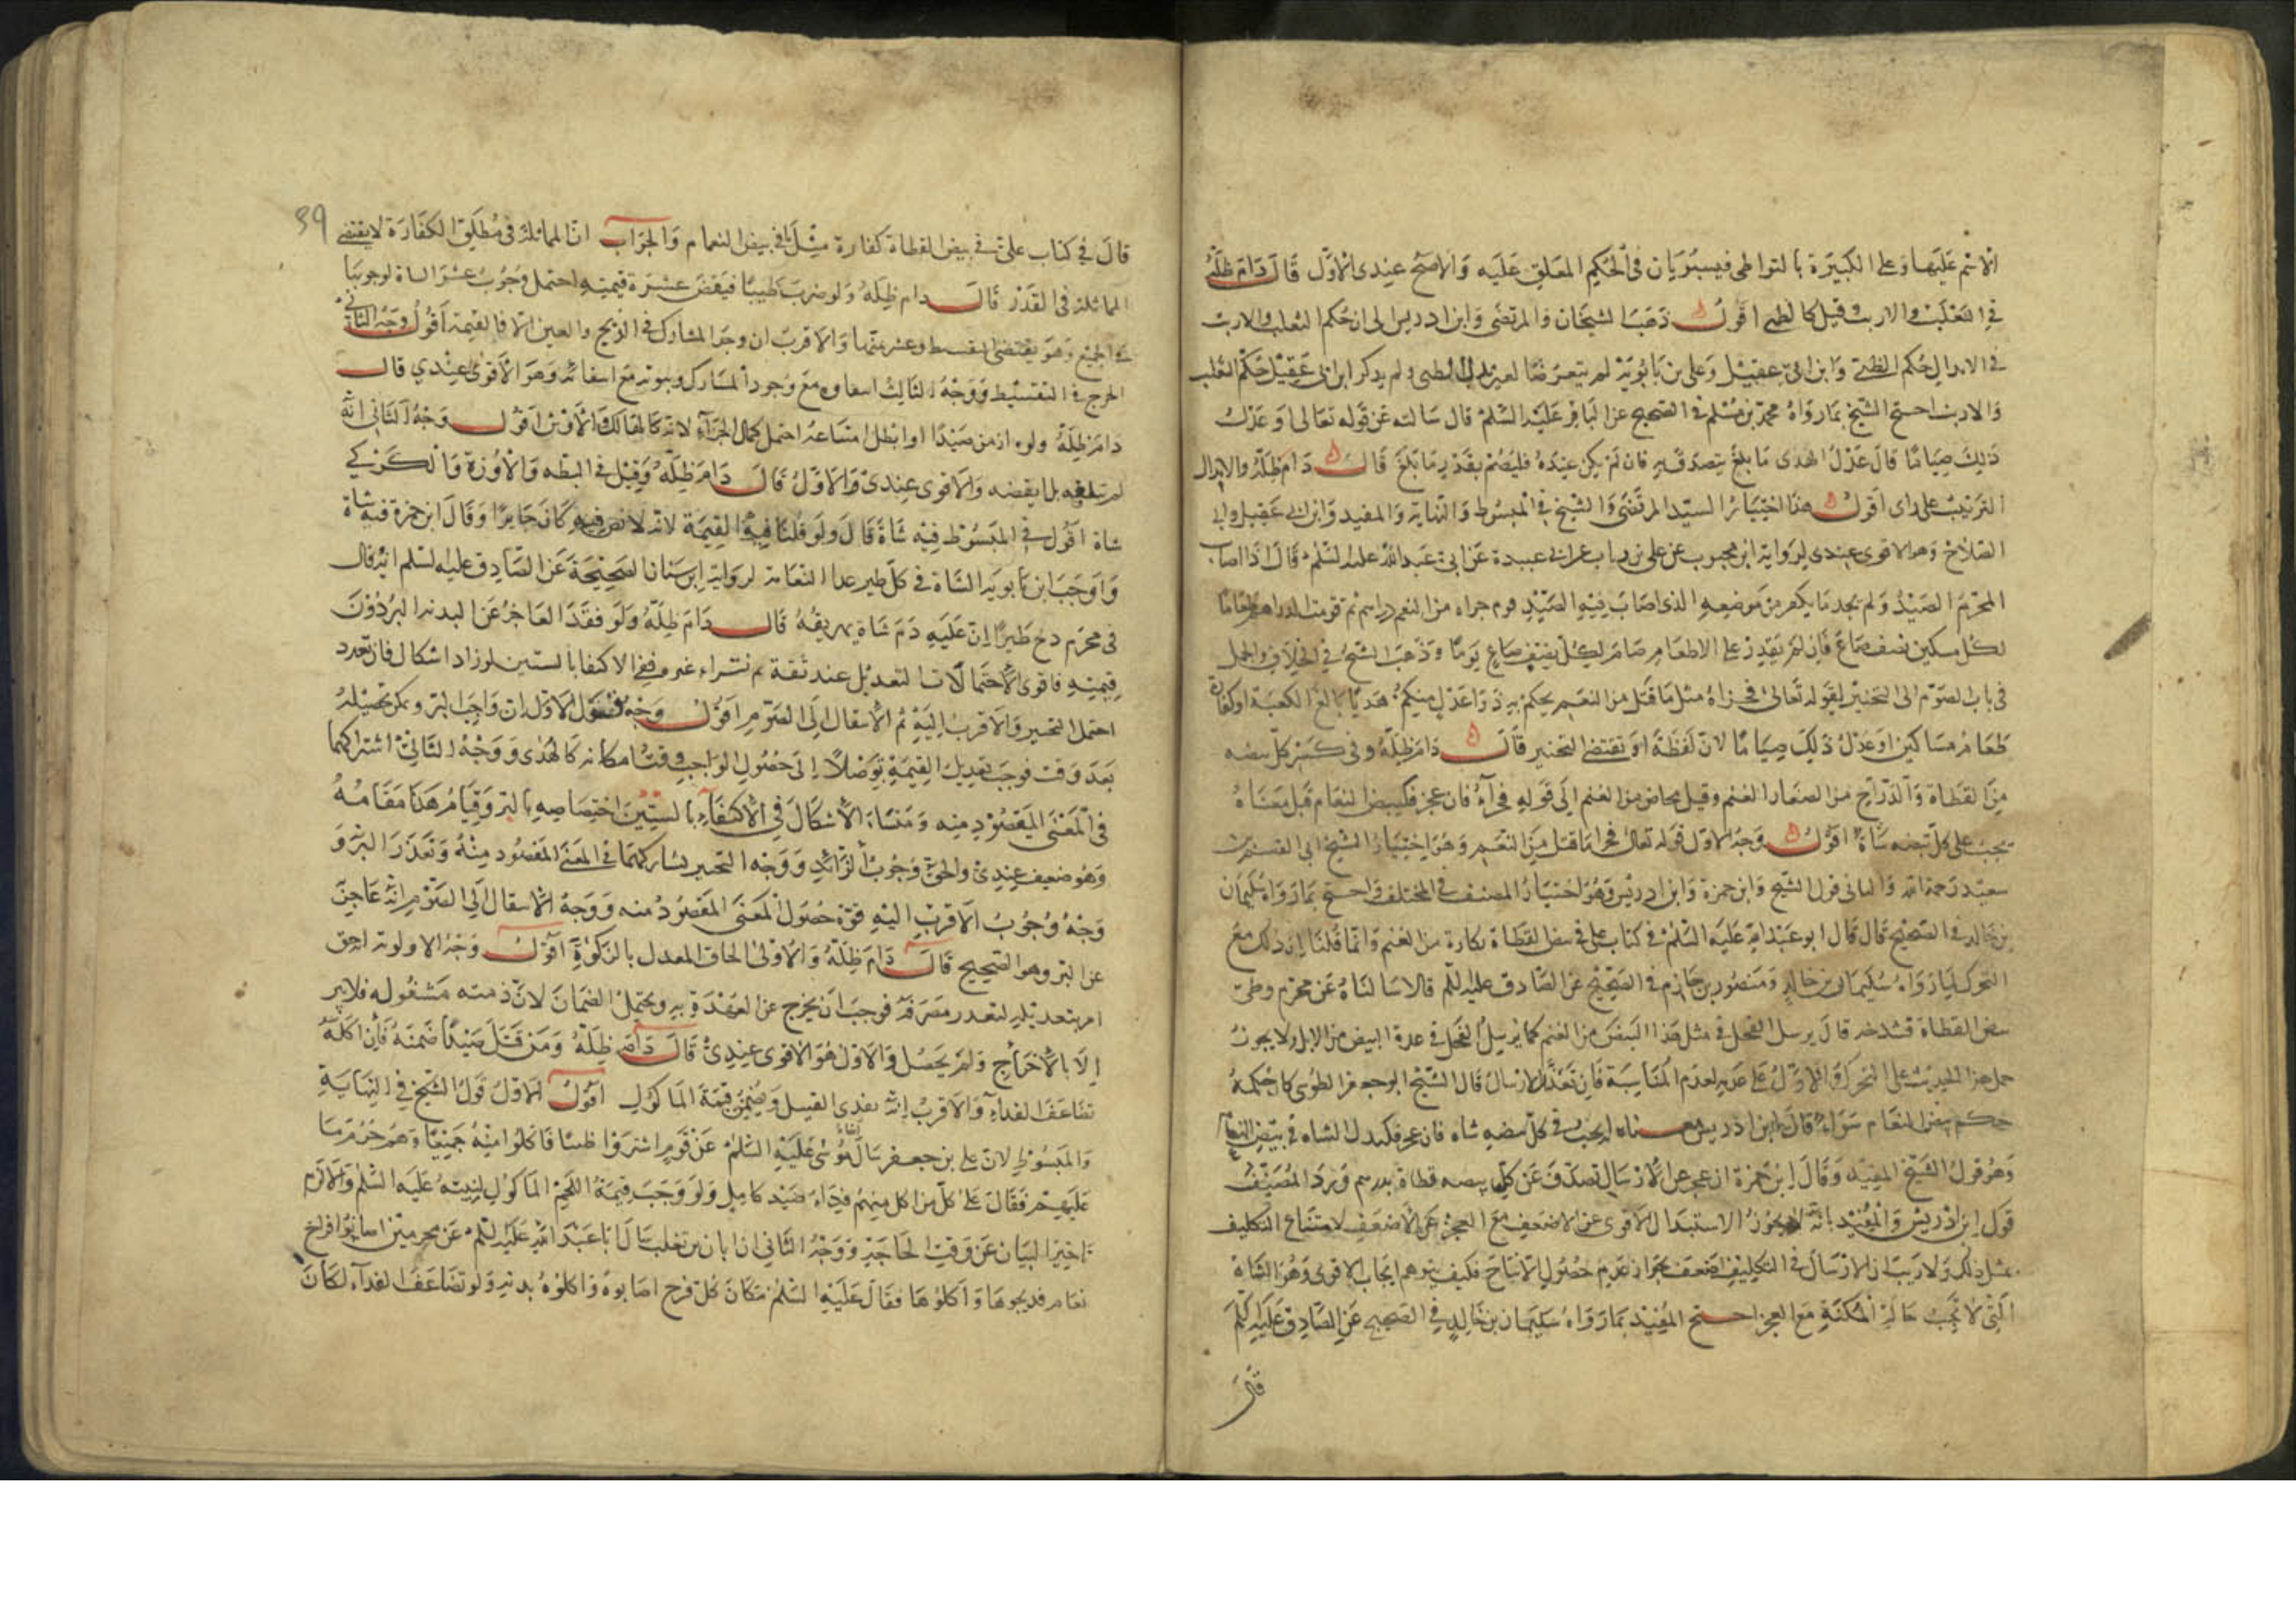 الاسم عليها وعلى الكبيرة بالتواطى فيستويان فى الحكم المعلق عليه والاصح عندى الاول قال دام ظله
فى الثعلب والارنب وقيل كالظبى اقول ذهب الشيخان والمرتضى وابن ادريس الى ان حكم الثعلب والارنب
فى الابدال حكم الظبى وابن ابى عقيل وعلى بن بابويه لم يتعرضا لغير الظبى ولم يذكر ابن ابى عقيل حكم الثعلب
والارنب احتج الشيخ بما رواه محمد بن مسلم فى الصحيح عن الباقر عليه السلم قال سالته عن قوله تعالى او عدل
ذلك صياما قال عدل الهدى ما بلغ يتصدق به فان لم يكن عنده فليصم بقدر ما بلغ قال دام ظله والابدال
الترتيب على راى اقول هذا اختيار السيد المرتضى والشيخ فى المبسوط والنهاية والمفيد وابن ابى عقيل وابى
الصلاح وهو الاقوى عندى لرواية ابن محبوب عن على بن رياب عن ابى عبيدة عن ابى عبد الله عليه السلم قال اذا اصاب
المحرم الصيد ولم يجد ما يكفر من موضعه الذى اصاب فيه الصيد قوم جزاه من النعم دراهم ثم قومت الدراهم طعاما
لكل مسكين نصف صاع فان لم يقدر على الاطعام صام لكل نصف صاع يوما وذهب الشيخ فى الخلاف والجمل
فى باب الصوم الى التخيير لقوله تعالى فجزاء مثل ما قتل من النعم يحكم به ذوا عدل منكم هديا بالغ الكعبة او كفارة
طعام مساكين او عدل ذلك صياما لان لفظة او تقتضى التخيير قال دام ظله وفى كسر كل بيضه
من القطاة والدراج من الصغار الغنم وقيل مخاض من الغنم الى قوله فان عجز فكبيض النعام قيل معناه
يجب على كل بيضه شاة اقول وجه الاول قوله تعالى فجزاء ما قتل من النعم وهو اختيار الشيخ ابى القسم بن
سعيد رحمه الله والثانى قول الشيخ وابن حمزة وابن ادريس وهو اختيار المصنف فى المختلف واحتج بما رواه سليمان
بن خالد فى الصحيح قال قال ابو عبد الله عليه السلم فى كتاب على فى بيض القطاة بكارة من الغنم وانما قلنا ان ذلك مع
التحرك لما رواه سليمان بن خالد ومنصور بن حازم فى الصحيح عن الصادق عليه السلم قالا سالناه عن محرم وطئ
بيض القطاة فشدخه قال يرسل الفحل فى مثل هذا البيض من الغنم كما يرسل الفحل فى عدة البيض من الابل ولا يجوز
حمل هذا الحديث على التحرك والاول على عدمه لعدم المناسبة فان تعذر الارسال قال الشيخ ابو جعفر الطوسى كان حكمه
حكم بيض النعام سواء قال ابن ادريس معناه يجب فى كل بيضه شاه فان عجز فكبدل الشاه فى بيض النعام
وهو قول الشيخ المفيد وقال ابن حمزة ان عجز عن الارسال تصدق عن كل بيضه قطاة بدرهم ورد المصنف
قول ابن ادريس والمفيد بانه لا يجوز الاستبدال الاقوى عن الاضعف مع العجز عن الاضعف لامتناع التكليف
بمثل ذلك ولا ريب ان الارسال فى التكليف اضعف لجواز عدم حصول الانتاج فكيف يتوهم ايجاب الاقوى وهو الشاة
التى لا تجب حالة المكنة مع العجز احتج المفيد بما رواه سليمان بن خالد فى الصحيح عن الصادق عليه السلم
قال
39
قال فى كتاب على فى بيض القطاة كفارة مثل ما فى بيض النعام والجواب ان المماثلة فى مطلق الكفارة لا يقتضى
المماثلة فى القدر قال دام ظله ولو ضرب ظبيا فنقص عشر قيمته احتمل وجوب عشر الشاة لوجوبها
فى الجميع وهو يقتضى التقسيط وعشر ثمنها والاقرب ان وجد المشارك فى الذبح فالعين والا فالقيمة اقول وجه الثانى
الحرج فى التقسيط ووجه الثالث انتفاوه مع وجود المشارك وثبوته مع انتفائه وهو الاقوى عندي قال
دام ظله ولو ازمن صيدا او ابطل امتناعه احتمل كمال الجزآء لانه كالهالك والارش اقول وجه الثانى انه
لم يتلفه بل نقصه والاقوى عندى الاول قال دام ظله وقيل فى البطه والاوزة والكركى
شاة اقول فى المبسوط فيه شاة قال ولو قلنا فيه القيمة لانه لا نص فيه كان جايزا وقال ابن حمزة فيه شاة
واوجب ابن بابويه الشاة فى كل طير عدا النعامة لرواية ابن سنان الصحيحة عن الصادق عليه السلم انه قال
فى محرم ذبح طيرا ان عليه دم شاة يهريقه قال دام ظله ولو فقد العاجز عن البدنه البر دون
قيمته فاقوى الاحتمالات التعديل عند ثقة ثم شراء غيره ففى الاكتفا بالستين لو زاد اشكال فان تعدد
احتمل التخيير والاقرب اليه ثم الانتقال الى الصوم اقول وجه الاول ان واجب البر ويمكن تحصيله
بعد وقت فوجب تعديل القيمة توصلا الى حصول الواجب وقت امكانه كالهدى ووجه الثانى اشتراكهما
فى المعنى المقصود منه ومنشاء الاشكال فى الاكتفاء بالستين اختصاصه بالبر وقيام هذا مقامه
وهو ضعيف عندى والحق وجوب الزائد ووجه التخيير تشاركهما فى المعنى المقصود منه وتعذر البر و
وجه وجوب الاقرب اليه قوة حصول المعنى المقصود منه ووجه الانتقال الى الصوم انه عاجز
عن البر وهو الصحيح قال دام ظله والاولى الحاق المعدل بالزكوة اقول وجه الاولوية انه
امر بتعديله لتعذر مصرفه فوجب ان يخرج عن العهدة به ويحتمل الضمان لان ذمته مشغوله فلا يبر
الا بالاخراج ولم يحصل والاول هو الاقوى عندى قال دام ظله ومن قتل صيدا ضمنه فان اكله
تضاعف الفدآء والاقرب انه يفدى القتيل ويضمن قيمة الماكول اقول الاول قول الشيخ فى النهاية
والمبسوط لان على بن جعفر سال اخاه موسى عليه السلم عن قوم اشتروا ظبيا فاكلوا منه جميعا وهم حرم ما
عليهم فقال على كل من اكل منهم فداء صيد كامل ولو وجب قيمة اللحم الماكول لبينه عليه السلم والا لزم
تاخير البيان عن وقت الحاجة ووجه الثانى ان ابان بن تغلب سال ابا عبد الله عليه السلم عن محرمين اصابوا افراخ
نعام فذبحوها واكلوها فقال عليه السلم مكان كل فرخ اصابوه واكلوه بدنة ولو تضاعف الفدآء لكان